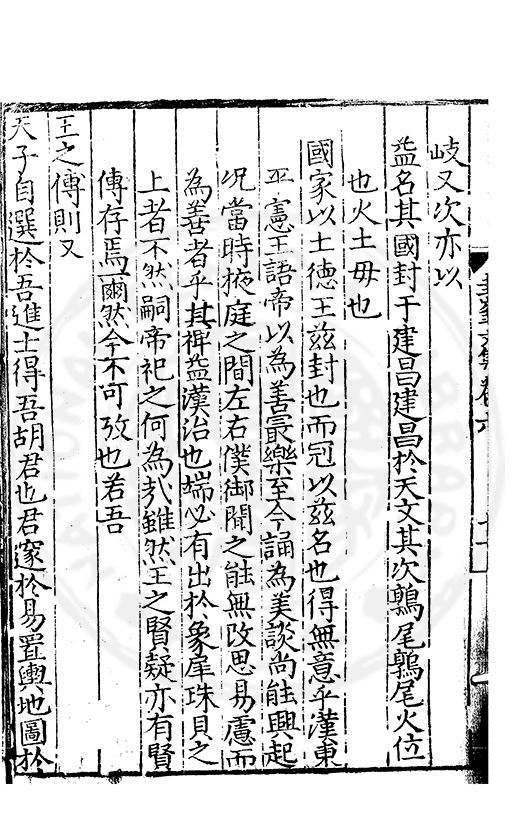 岐又次亦以
益名其國封于建昌建昌於天文其次鶉尾鶉尾火位
也火土毋也
國家以土德王玆封也而冠以玆名也得無意乎漢東
平憲王語帝以為善最樂至今誦為美談尚能興起
况當時掖庭之間左右僕御聞之能無改思易慮而
為善者乎其裨益漢治也端必有出於象犀珠貝之
上者不然嗣帝祀之何為㢤雖然王之賢疑亦有賢
傳存焉爾然今不可攷也若吾
王之傅則又
天子自選於吾進士得吾胡君也君邃於易置輿地圖於